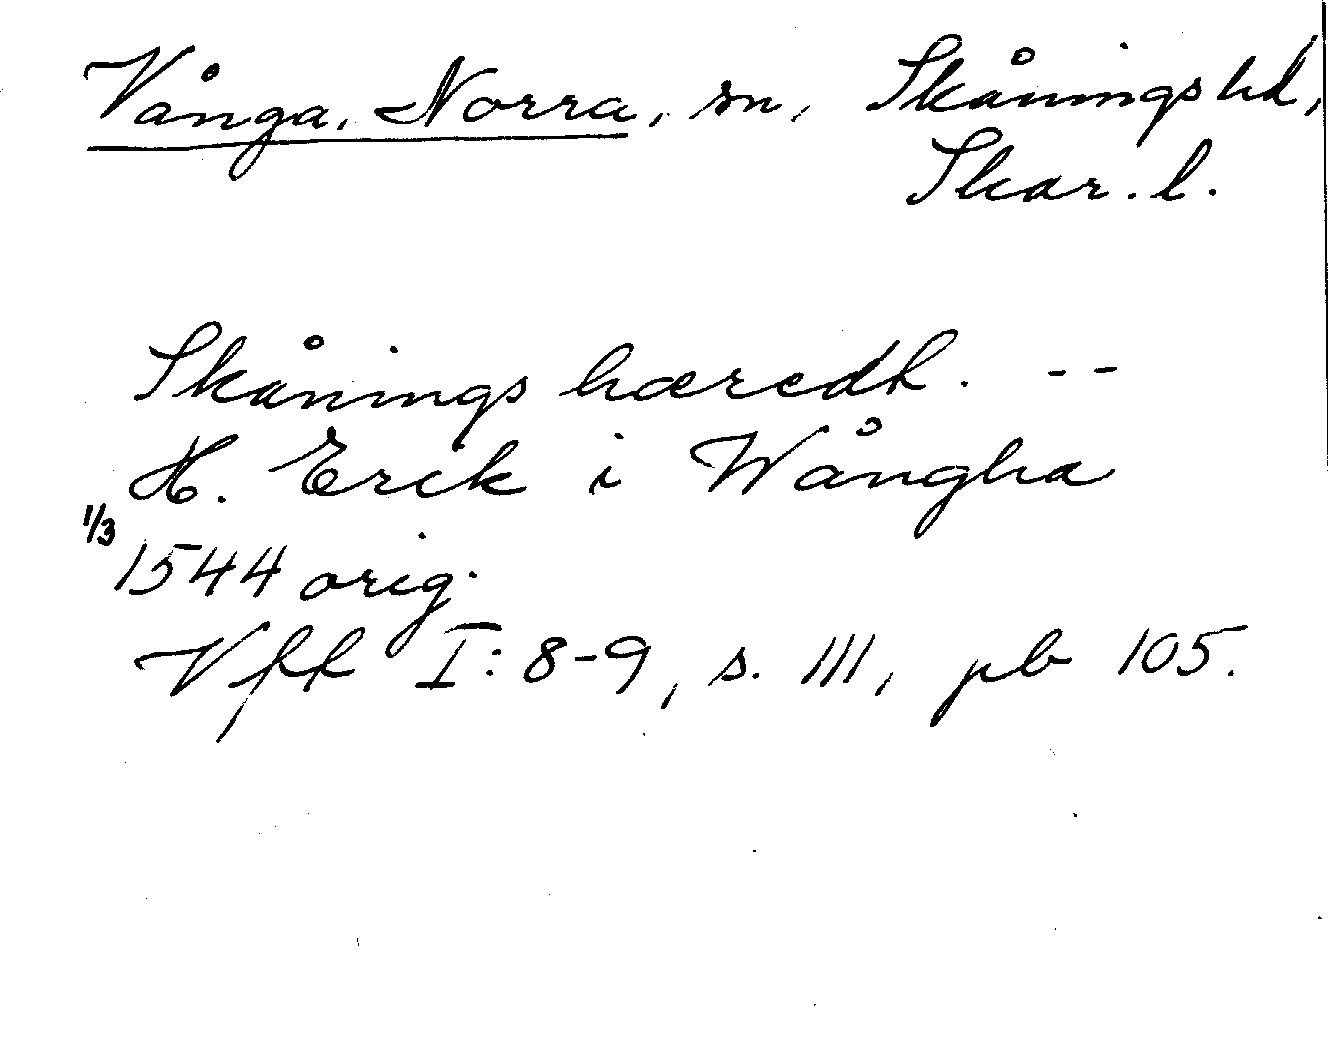 Vånga, Norra, sn, Skånings hd,
Skar. l.
Skånings hæredh. --
H. Erick i Wångha
1/3
1544 orig.
Vfft I: 8-9, s. 111, pb 105.